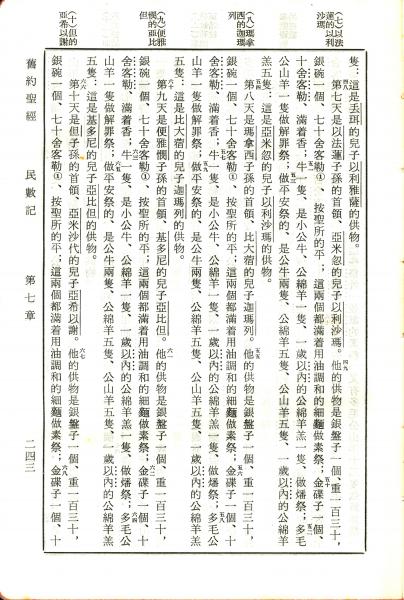 (七)以法
蓮的以利
沙瑪
(八)瑪拿
西的迦瑪
列
(九)便雅
憫的亞比
但
(十)但的
亞希以謝
隻:這是丟珥的兒子以利雅薩的供物。
第七天是以法蓮子孫的首領、亞米忽的兒子以利沙瑪。四九他的供物是銀盤子一個、重一百三十,
銀碗一個、七十舍客勒①、按聖所的平;這兩個都滿着用油調和的細麵做素祭;五十金碟子一個、
十舍客勒、滿着香;五一牛一隻、是小公牛、公綿羊一隻、一歲以內的公綿羊羔一隻、做燔祭;五二多毛
公山羊一隻做解罪祭;五三做平安祭的、是公牛兩隻、公綿羊五隻、公山羊五隻、一歲以內的公綿羊
羔五隻:這是亞米忽的兒子以利沙瑪的供物。
五四第八天是瑪拿西子孫的首領、比大蓿的兒子迦瑪列。五五他的供物是銀盤子一個、重一百三十,
銀碗一個、七十舍客勒①、按聖所的平;這兩個都滿着用油調和的細麵做素祭;五六金碟子一個、十
舍客勒、滿着香;五七牛一隻、是小公牛、公綿羊一隻、一歲以內的公綿羊羔一隻、做燔祭;五八多毛公
山羊一隻做解罪祭;五九做平安祭的、是公牛兩隻、公綿羊五隻、公山羊五隻、一歲以內的公綿羊羔
五隻:這是比大蓿的兒子迦瑪列的供物。
六十第九天是便雅憫子孫的首領、基多尼的兒子亞比但。六一他的供物是銀盤子一個、重一百三十,
銀碗一個、七十舍客勒①、按聖所的平;這兩個都滿着用油調和的細麵做素祭;六二金碟子一個、十
舍客勒、滿着香;六三牛一隻、是小公牛、公綿羊一隻、一歲以內的公綿羊羔一隻、做燔祭;六四多毛公
山羊一隻做解罪祭;六五做平安祭的、是公牛兩隻、公綿羊五隻、公山羊五隻、一歲以內的公綿羊羔
五隻:這是基多尼的兒子亞比但的供物。
六六第十天是但子孫的首領、亞米沙代的兒子亞希以謝。六七他的供物是銀盤子一個、重一百三十,
銀碗一個、七十舍客勒①、按聖所的平;這兩個都滿着用油調和的細麵做素祭;六八金碟子一個、十
舊約聖經 民數記 第七章 二四三